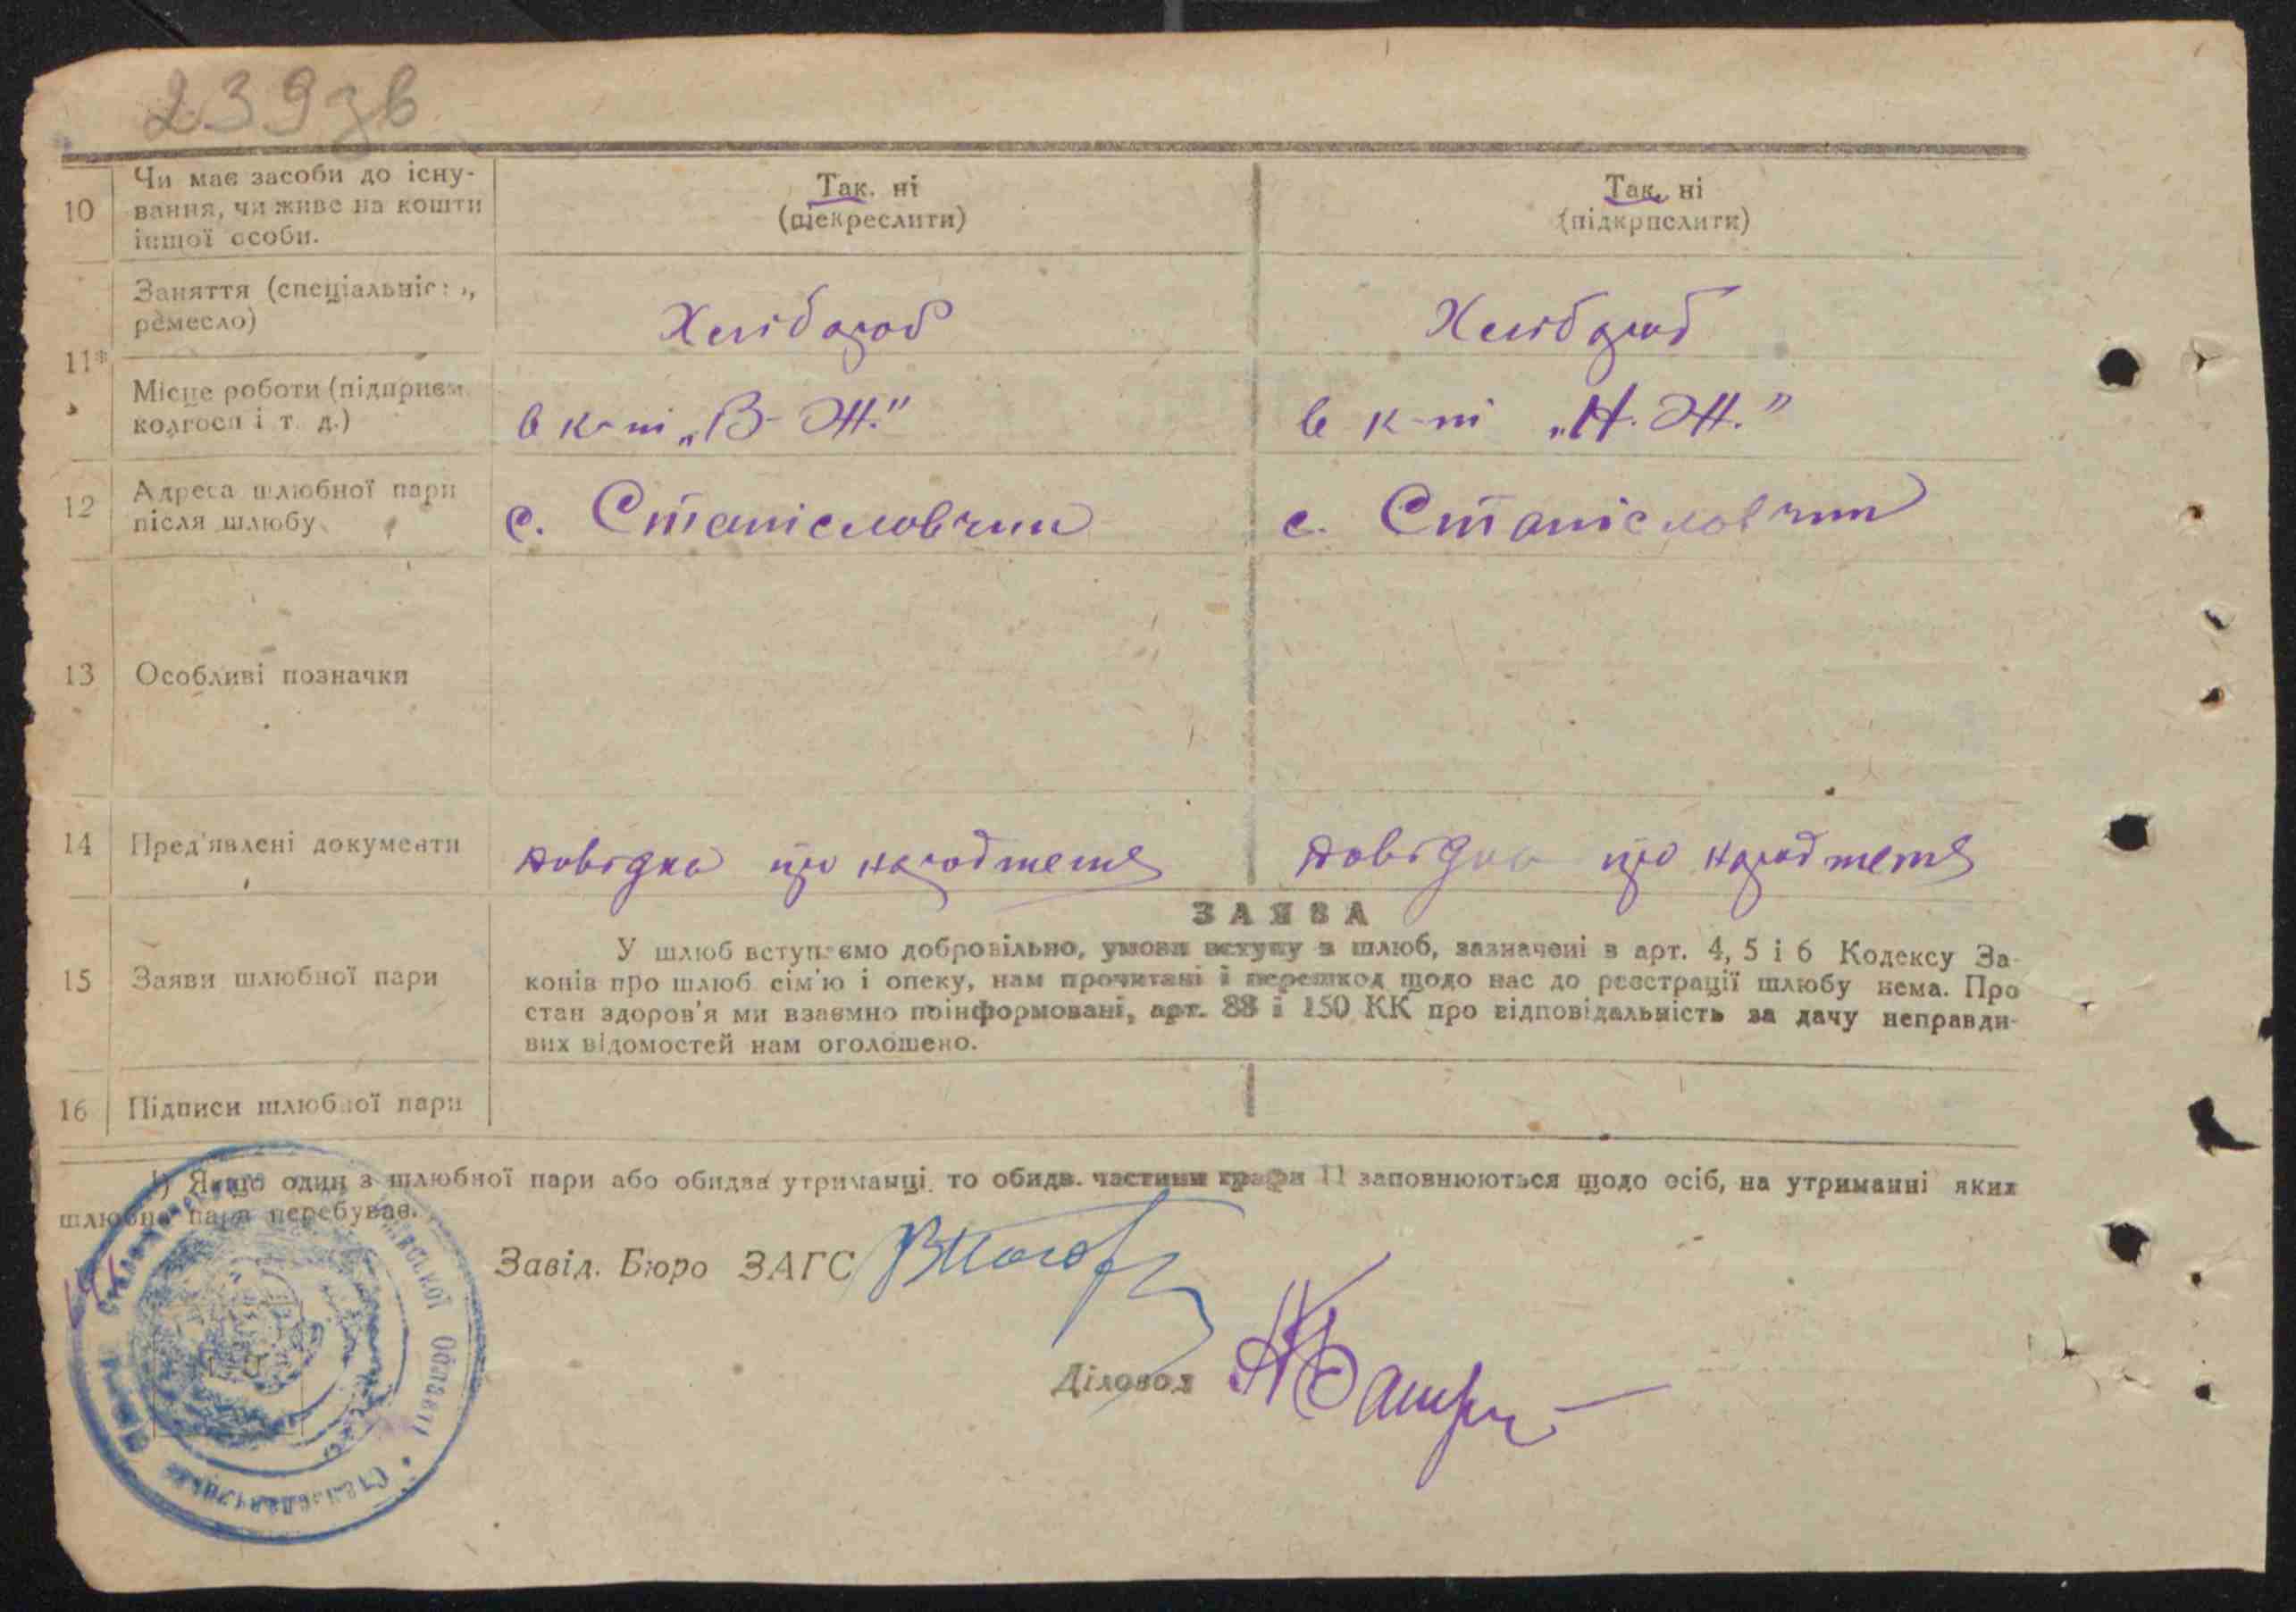 239 зв
10
Чи має засоби до існу-
вання, чи живе на кошти
іншої особи.
Так. ні
(підкреслити)
Так, ні
(підкрпслити)
11*
Заняття (спеціальніс,
ремесло)
Хлібороб
Хлібороб
Місце роботи (підприєм
колгосп і т. д.)
в к-пі „В-Ж."
в к-пі „Н.Ж."
12
Адреса шлюбної пари
після шлюбу
с. Станіславчик
с. Станіславчик
13
Особливі позначки
14
Пред'явлені документи
довідка про народження
довідка про народження
15
Заяви шлюбної пари
ЗАЯВА
У шлюб вступаємо добровільно, умови вступу в шлюб, зазначені в арт. 4, 5 і 6 Кодексу За-
конів про шлюб сім'ю і опеку, нам прочитані і перешкод щодо нас до реєстрації шлюбу нема. Про
стан здоров'я ми взаємно поінформовані, арт. 88 і 150 КК про відповідальність за дачу неправди-
вих відомостей нам оголошено.
16
Підписи шлюбної пари
¹) Якщо один з шлюбної пари або обидва утриманці то обидв. частини графи 11 заповнюються щодо осіб, на утриманні яких
шлюбна пара перебуває.
Завід. Бюро ЗАГС
Діловод
Області